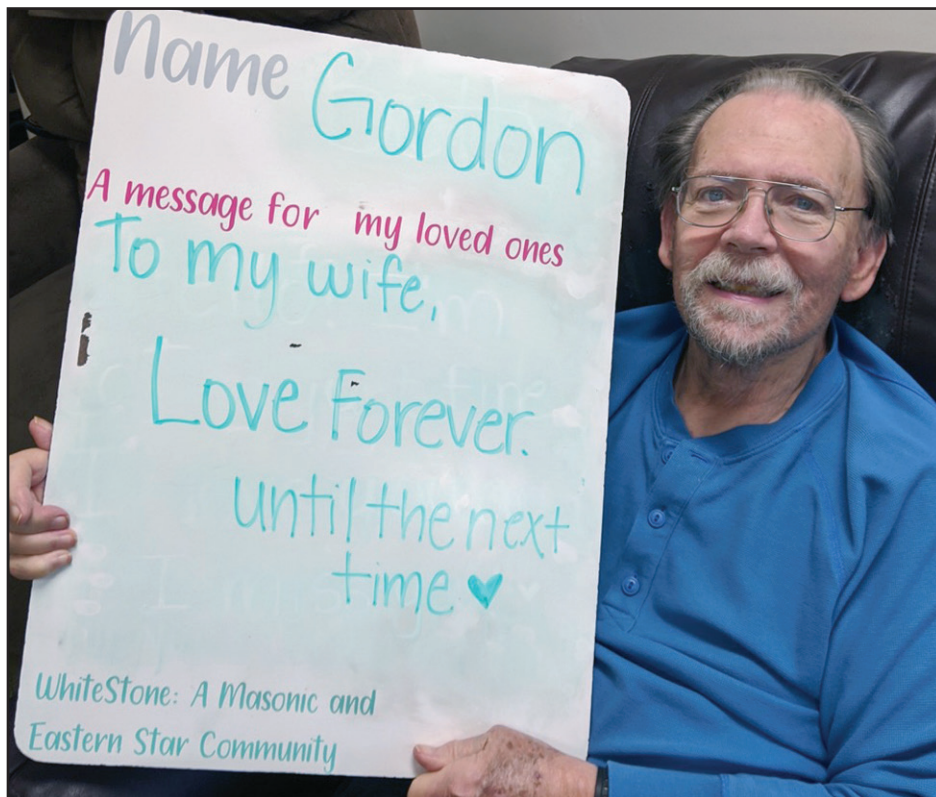 Name Gordon
A message for my loved ones
To my wife,
Love Forever.
until the next
time ♥
WhiteStone: A Masonic and
Eastern Star Community